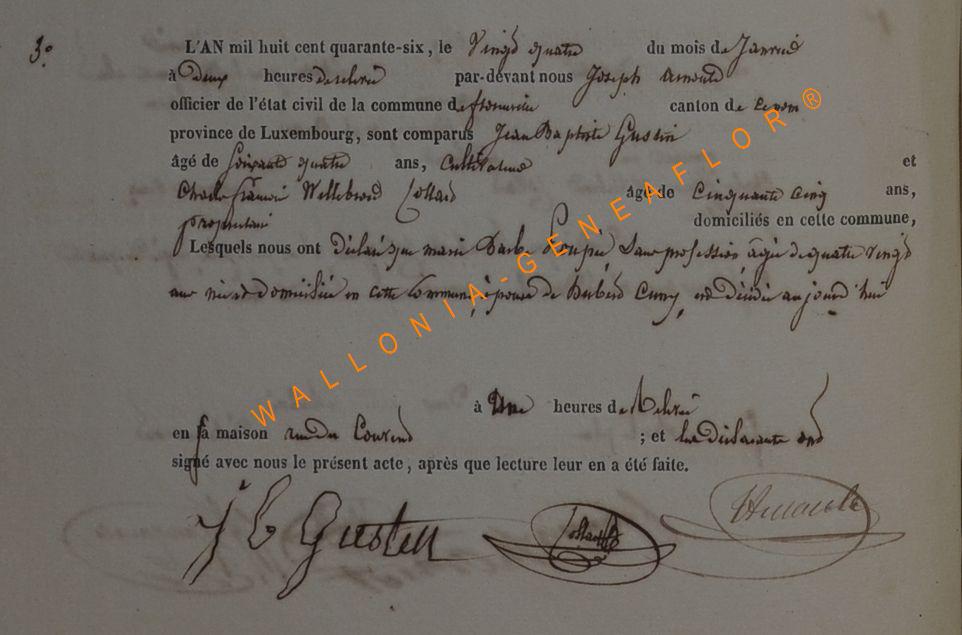 3°
L'AN mil huit cent quarante-six, le Vingt quatre du mois de Janvier
à Deux heures de relevée par-devant nous Joseph Arnould
officier de l'état civil de la commune de canton de
province de Luxembourg, sont comparus Jean Baptiste Gustin
âgé de Soixante quatre ans, Cultivateur et
Charles François Willebrord Collard âgé de Cinquante Cinq ans,
propriétaire domiciliés en cette commune,
Lesquels nous ont Déclaré que marie Barbe Poupié Sans profession, agée de quatre Vingt
ans née et domiciliée en cette Commune, épouse de Hubert Cuny, est décédée aujourd'hui
à Une heures de Relevée
en sa maison rue du Couvent ; et les déclarants ont
signé avec nous le présent acte, après que lecture leur en a été faite.
J B Gustin Collard Arnould
WALLONIA-GENEAFLOR®